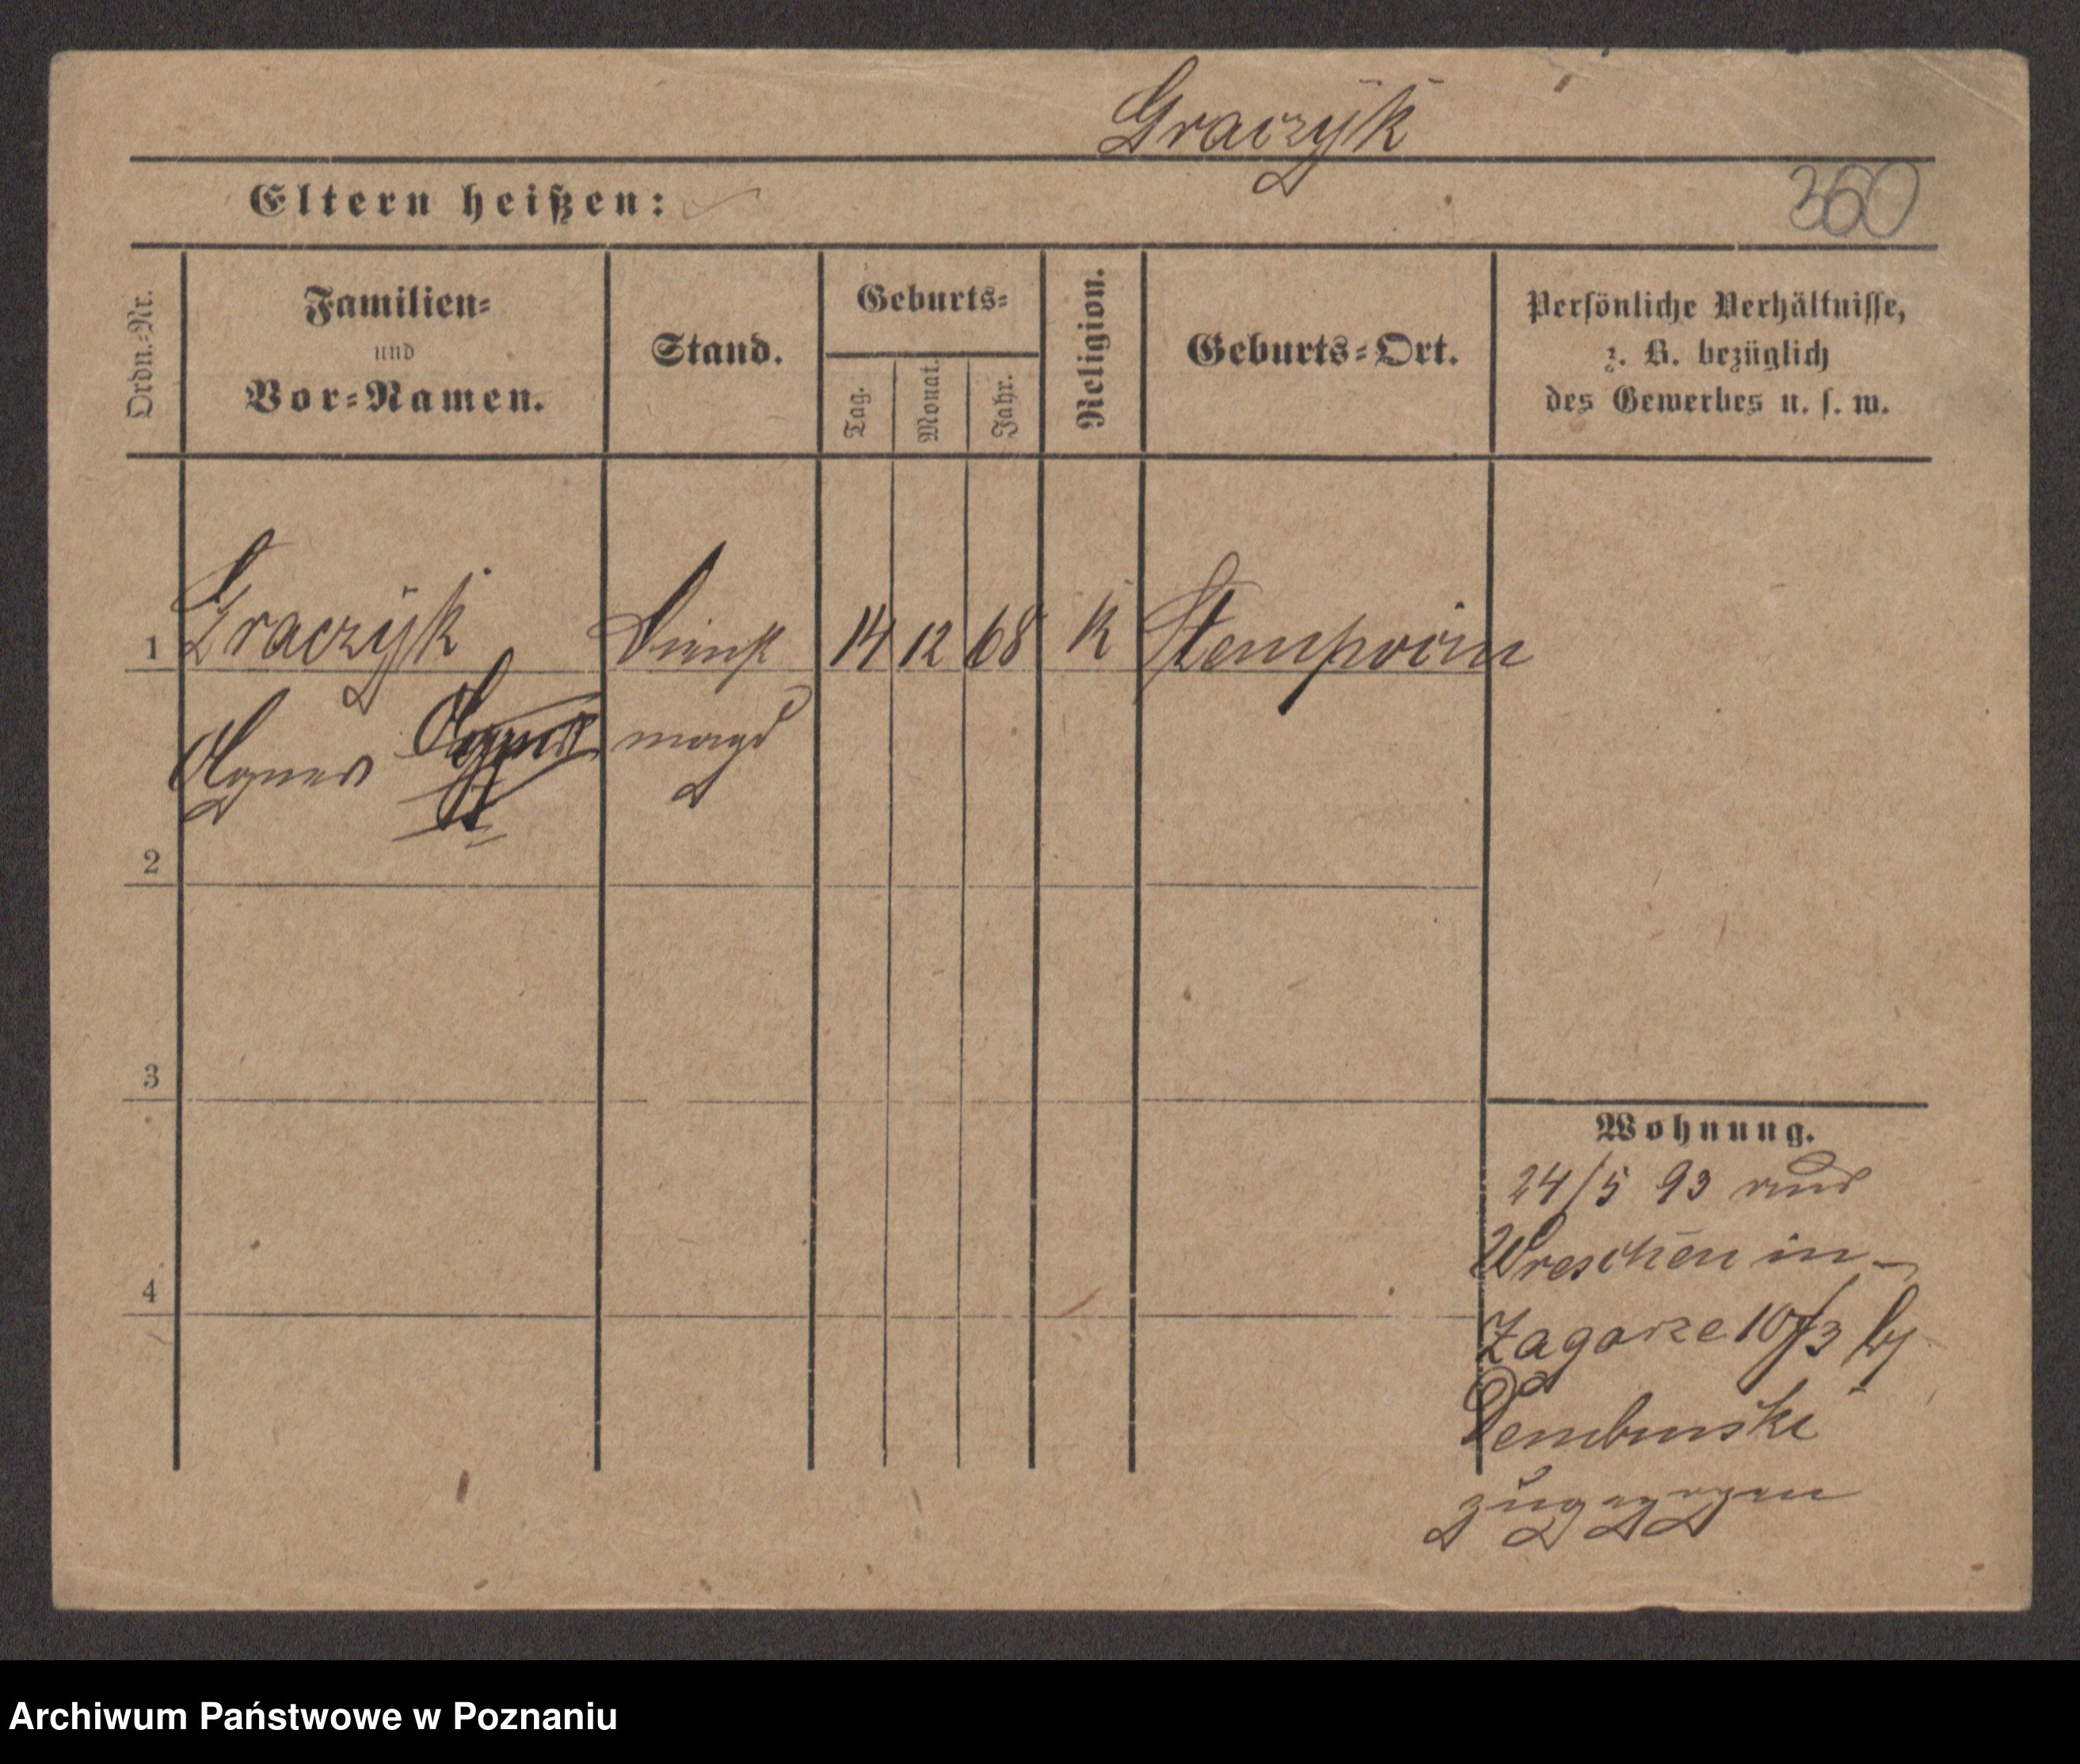 Graczÿk
Eltern heißen:
360
Ordn.-Nr.
Familien-
und
Vor-Namen.
Stand.
Geburts-
Tag.
Monat.
Jahr.
Religion.
Geburts-Ort.
Persönliche Verhältnisse,
z. B. bezüglich
des Gewerbes u. s. w.
1
Graczÿk
Dienst
14
12
68
K
Agnes
magd
2
3
4
Wohnung.
24/5 93 aus
Wreschen in
Zagorze
Dembinski
zugezogen
Archiwum Państwowe w Poznaniu